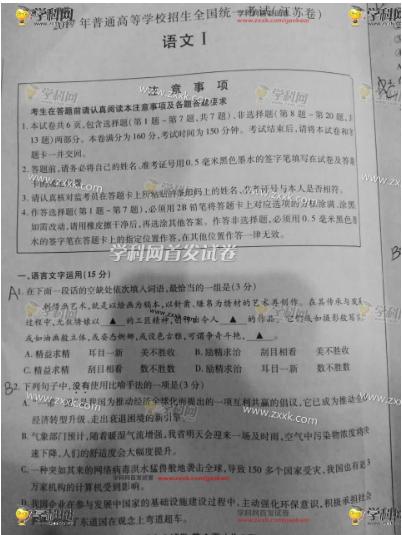 学科网
www.zxxk.com
2017年普通高等学校招生全国统一考试(江苏卷)
语文 I
注 意 事 项
考生在答题前请认真阅读本注意事项及各题答题要求
1. 本试卷共6页,包含选择题(第1题~第7题,共7题)、非选择题(第8题~第20题,共
13题)两部分。本卷满分为160分,考试时间为150分钟。考试结束后,请将本试卷和答
题卡一并交回。
2. 答题前,请务必将自己的姓名、准考证号用0.5毫米黑色墨水的签字笔填写在试卷及答题
卡的规定位置。
3. 请认真核对监考员在答题卡上所粘贴的条形码上的姓名、准考证号与本人是否相符。
4. 作答选择题(第1题~第7题),必须用2B铅笔将答题卡上对应选项的方框涂满、涂黑;
如需改动,请用橡皮擦干净后,再选涂其他答案。作答非选择题,必须用0.5毫米黑色墨
水的签字笔在答题卡上的指定位置作答,在其他位置作答一律无效。
学科网首发试卷
一、语言文字运用(15分)
A 1. 在下面一段话的空缺处依次填入词语,最恰当的一组是(3分)
刺绣画艺术,就是以绘画为稿本,以针黹、缣帛为绣材的艺术再创作。在其传承与发展
过程中,尤能臻以 ▲ 的工匠精神,创作出令人 ▲ 的作品。它们或如摄影般写实,
或如油画般立体,或姿态婀娜,或设色古雅,可谓争奇斗艳, ▲ 。
A. 精益求精 耳目一新 美不胜收 B. 励精求治 刮目相看 美不胜收
C. 精益求精 刮目相看 数不胜数 D. 励精求治 耳目一新 数不胜数
B 2. 下列句子中,没有使用比喻手法的一项是(3分)
A. “一带一路”是我国为推动经济全球化而提出的一项互利共赢的倡议,它已成为推动全球
经济转型升级、走出衰退困境的新引擎。
B. 气象部门预计,随着暖湿气流增强,我省明天会迎来一场及时雨,空气中污染物浓度将快
速下降,人们的舒适度会大幅度提升。
C. 一种突如其来的网络病毒洪水猛兽般地袭击全球,导致150多个国家受灾,我国也有近3
万家机构的计算机受到影响。
D. 我国企业在参与发展中国家的基础设施建设过程中,主动强化环保意识,积极承担社会
了东道国在观念上弯道超车。